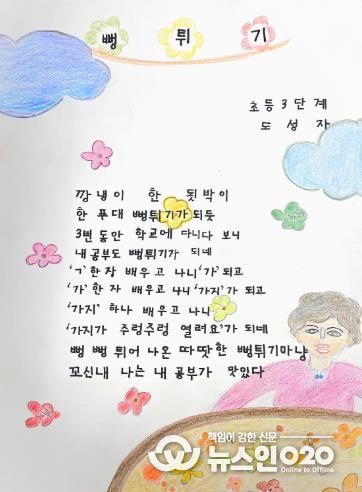 뻥 튀 기
초등3단계
도성자
깡냉이 한 됫박이
한 푸대 뻥튀기가 되듯
3년 동안 학교에 다니다 보니
내 공부도 뻥튀기가 되네
'ㄱ' 한 자 배우고 나니 '가' 되고
'가' 한 자 배우고 나니 '가지' 가 되고
'가지' 하나 배우고 나니
'가지가 주렁주렁 열려요' 가 되네
뻥 뻥 튀어 나온 따땃한 뻥튀기마냥
꼬신내 나는 내 공부가 맛있다
책임이 강한 신문
뉴스인020
Online to Offline